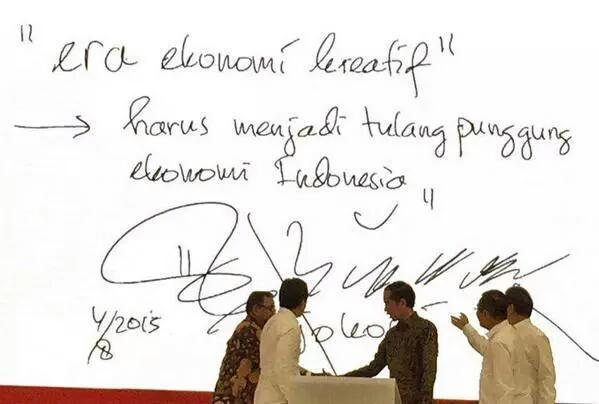 "era ekonomi kreatif"
→ harus menjadi tulang punggung
ekonomi Indonesia "
4/2015
/8